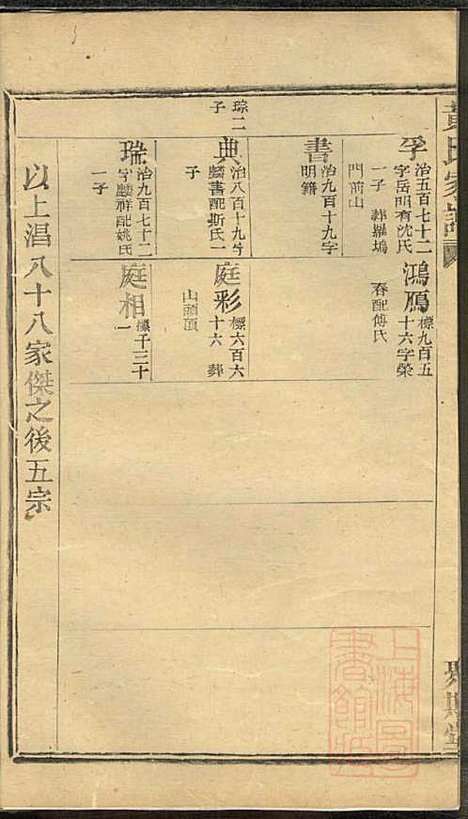 黃氏家譜
孚
治五百七十二
字岳明有沈氏
一子 葬羅塢
門前山
書
治九百十九字
明籍
琮二
子
典
治八百十九字
麟書配斯氏一
子
瑞
治九百七十二
字麟祥配姚氏
一子
鴻鴈
標九百五
十六字榮
春配傅氏
庭彩
標六百六
十六 葬
山頭頂
庭相
標千三十
一
以上淐八十八家傑之後五宗
上海圖書館藏